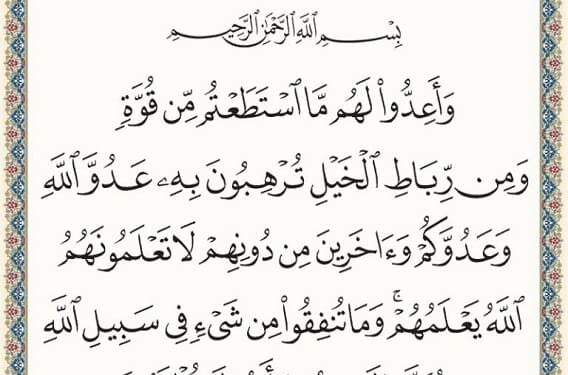 بِسْمِ ٱللَّهِ ٱلرَّحْمَٰنِ ٱلرَّحِيمِ
وَأَعِدُّوا۟ لَهُم مَّا ٱسْتَطَعْتُم مِّن قُوَّةٍ
وَمِن رِّبَاطِ ٱلْخَيْلِ تُرْهِبُونَ بِهِۦ عَدُوَّ ٱللَّهِ
وَعَدُوَّكُمْ وَءَاخَرِينَ مِن دُونِهِمْ لَا تَعْلَمُونَهُمُ
ٱللَّهُ يَعْلَمُهُمْ ۚ وَمَا تُنفِقُوا۟ مِن شَىْءٍ فِى سَبِيلِ ٱللَّهِ